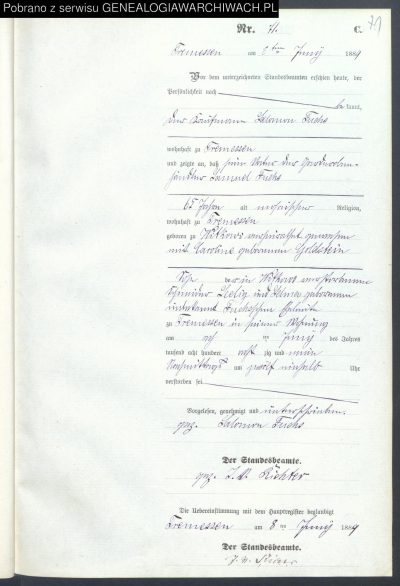 Pobrano z serwisu GENEALOGIAWARCHIWACH.PL
79
Nr. 71. C.
Tremessen am 8ten Juny 1889
Vor dem unterzeichneten Standesbeamten erschien heute, der
Persönlichkeit nach
be kannt,
der Kaufmann Salomon Fuchs
wohnhaft zu Tremessen
und zeigte an, daß sein Vater der Garderoben-
händler Samuel Fuchs
65 Jahre alt mosaischer Religion,
wohnhaft zu Tremessen
geboren zu Witkowo verheirathet gewesen
mit Caroline geborenen Goldstein
Sohn der in Witkowo verstorbenen
Schneider Selig und geborenen
unbekannt Fuchs'schen Eheleute
zu Tremessen in seiner Wohnung
am Juny des Jahres
tausend acht hundert acht zig und neun
Nachmittags um zwölf einhalb Uhr
verstorben sei
Vorgelesen, genehmigt und unterschrieben.
gez. Salomon Fuchs
Der Standesbeamte.
gez. Richter
Die Uebereinstimmung mit dem Hauptregister beglaubigt
Tremessen am 8ten Juny 1889
Der Standesbeamte.